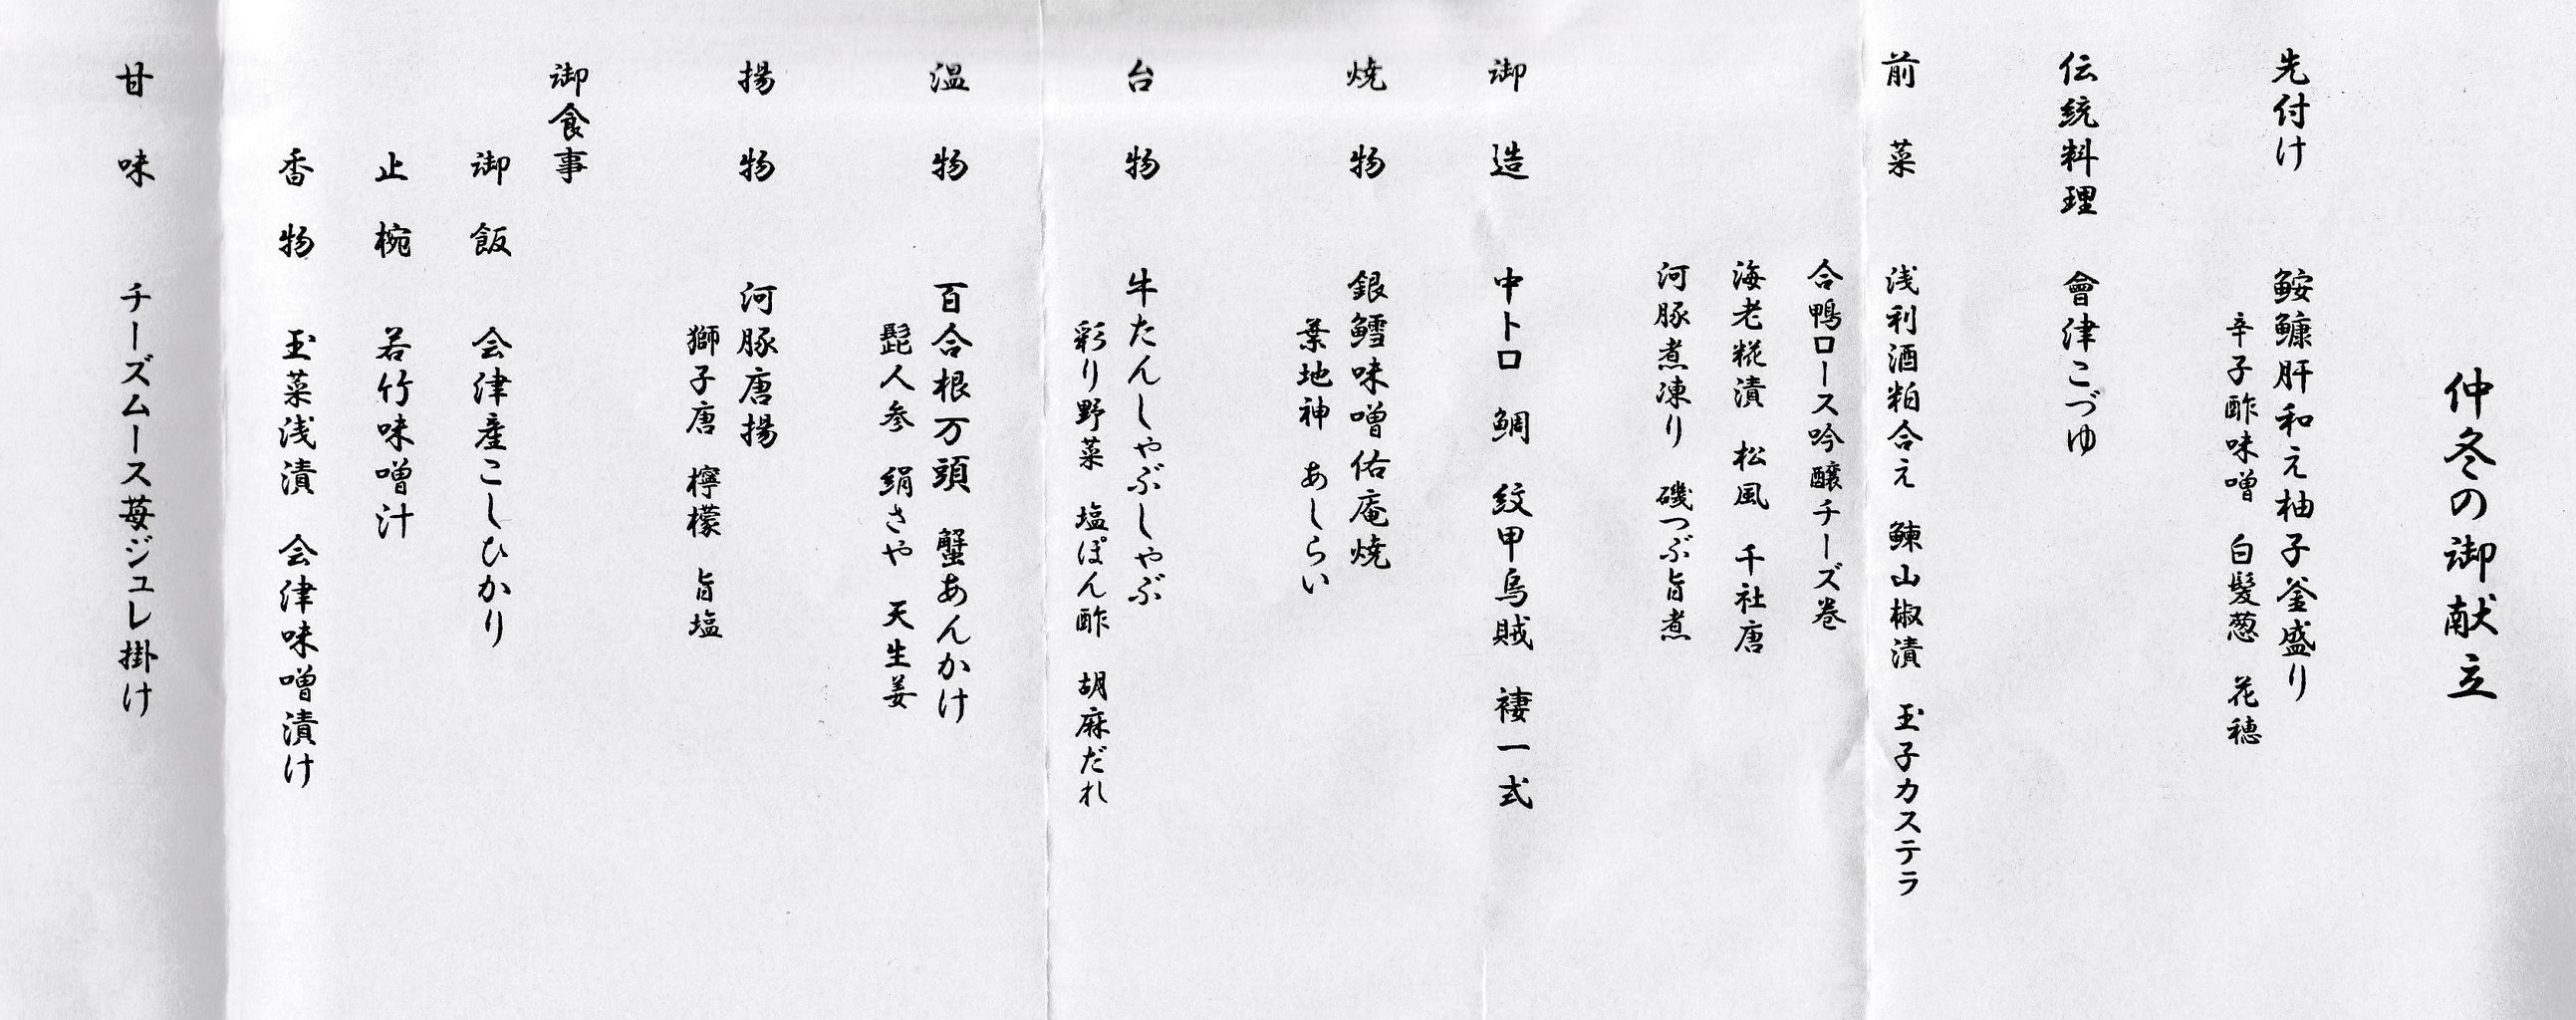 仲冬の御献立
先付け 鮟鱇肝和え柚子釜盛り
辛子酢味噌 白髪葱 花穂
伝統料理 會津こづゆ
前菜 浅利酒粕合え 鰊山椒漬 玉子カステラ
合鴨ロース吟醸チーズ巻
海老糀漬 松風 千社唐
河豚煮凍り 磯つぶ旨煮
御造 中トロ 鯛 紋甲烏賊 褄一式
焼物 銀鱈味噌佑庵焼
葉地神 あしらい
台物 牛たんしゃぶしゃぶ
彩り野菜 塩ぽん酢 胡麻だれ
温物 百合根万頭 蟹あんかけ
髭人参 絹さや 天生姜
揚物 河豚唐揚
獅子唐 檸檬 旨塩
御食事
御飯 会津産こしひかり
止椀 若竹味噌汁
香物 玉菜浅漬 会津味噌漬け
甘味 チーズムース苺ジュレ掛け